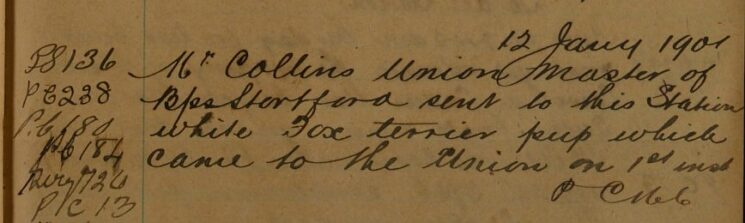 12 Jany 1901
PS 136 Mr Collins Union Master of
PC 238 Bps Stortford sent to this Station
PC 180 white Fox terrier pup which
PC 184 came to the Union on 1st inst
726
PC 13